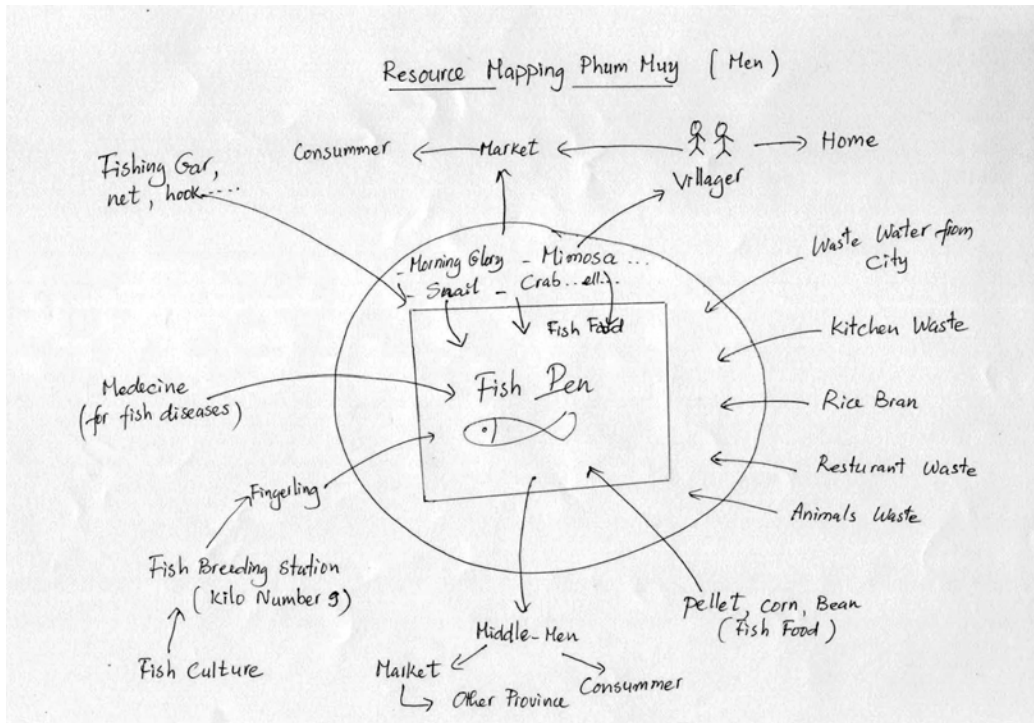 Resource Mapping Phum Muy (Men)
Consummer
Market
Villager
Home
Fishing Gar,
net, hook.....
- Morning Glory
- Mimosa ...
- Snail
- Crab...ell...
Fish Food
Waste Water from
City
Kitchen Waste
Rice Bran
Resturant Waste
Animals Waste
Fish Pen
Medecine
(for fish diseases)
Fingerling
Fish Breeding Station
(Kilo Number 9)
Fish Culture
Pellet, Corn, Bean
(Fish Food)
Middle-Men
Market
Other Province
Consummer